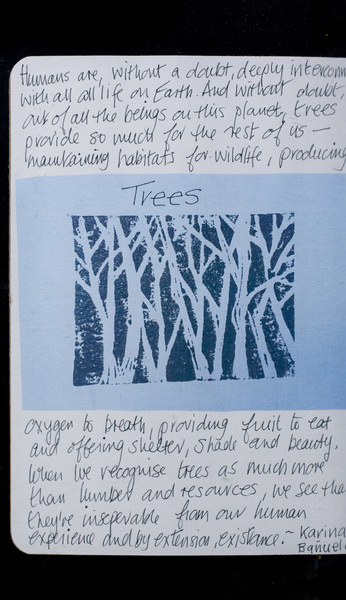 Humans are, without a doubt, deeply interconn
with all all life on Earth. And without doubt,
out of all the beings on this planet, trees
provide so much for the rest of us —
maintaining habitats for wildlife, producing
Trees
oxygen to breath, providing fruit to eat
and offering shelter, shade and beauty.
When we recognise trees as much more
than lumber and resources, we see tha
they're inseperable from our human
experience and by extension, existance. - Karina
Bañuel